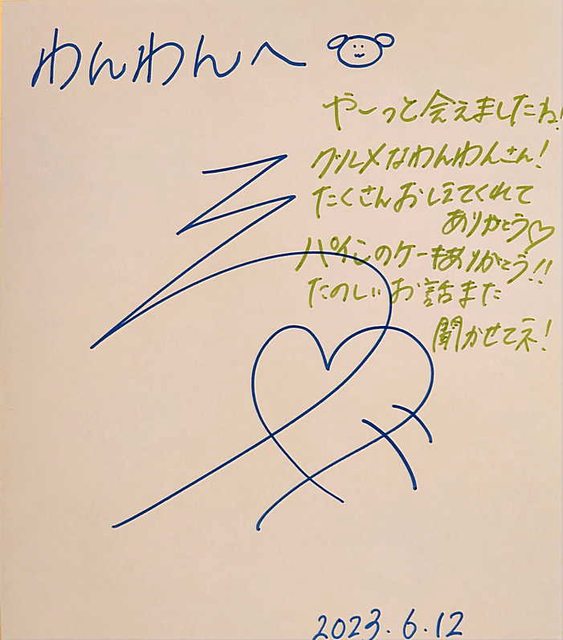 わんわんへ
やーっと会えましたね!
グルメなわんわんさん!
たくさんおしえてくれて
ありがとう♡
パインのケーキありがとう!!
たのしいお話また
聞かせてネ!
2023.6.12